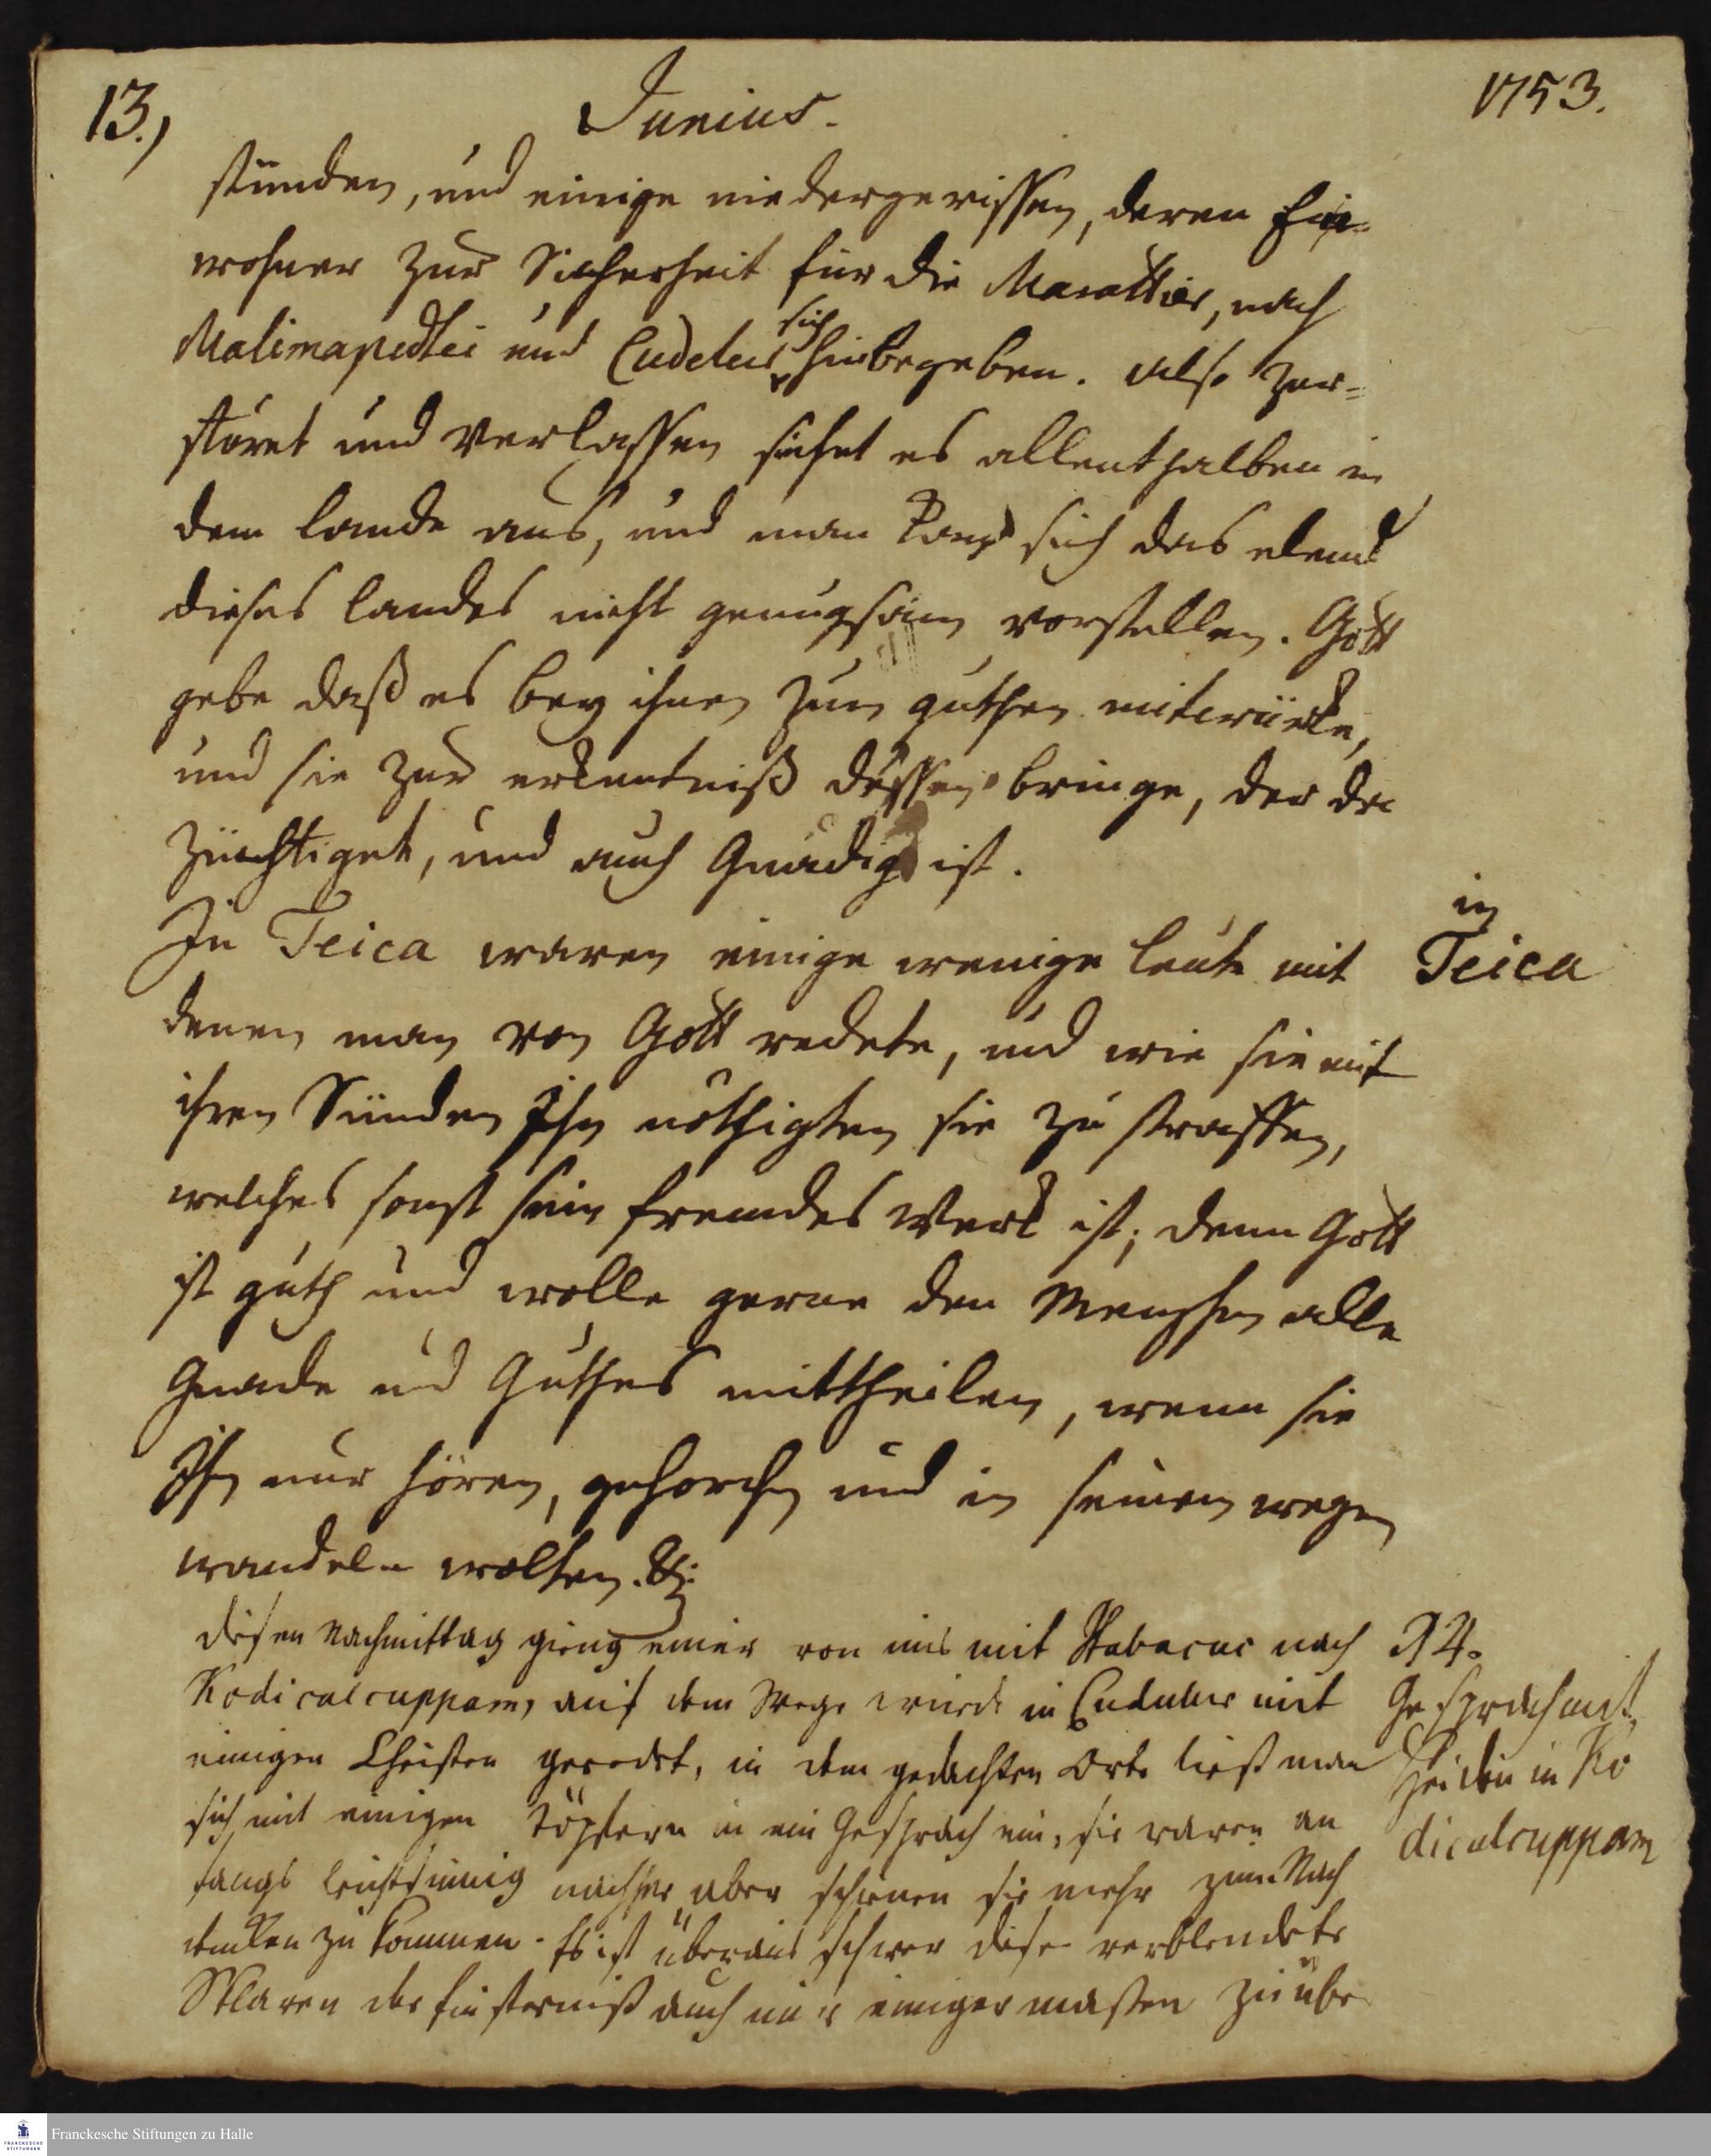 13.) Junius. 1753.
stunden, und einige niedergerissen, deren Ein-
wohner zur Sicherheit für die Marattier, nach
Malimapedtei und Cudelur sich hinbegeben. Also zer=
störet und verlassen siehet es allenthalben in
dem Lande aus, und man kan sich das elend
dieses Landes nicht genugsam vorstellen. Gott
gebe daß es bey ihnen zum guthen mitwürke,
und sie zur erkentniß dessen bringe, der da
züchtiget, und auch Gnädig ist.
In Teica waren einige wenige Leute mit
in
Teica
denen man von Gott redete, und wie sie mit
ihren Sünden Ihn nöthigten sie zu straffen,
welches sonst sein fremdes Werk ist; denn Gott
ist guth und wolle gerne den Menschen alle
Gnade und Guthes mittheilen, wenn sie
Ihn nur hören, gehorchen und in seinen wegen
wandeln wolten.
Diesen Nachmittag gieng einer von uns mit Habacuc nach
Kodicalcuppam, auf dem Wege wurde in Cudulur mit
einigen Christen geredet, in dem gedachten Orte ließ man
sich mit einigen Töpfern in ein Gespräch ein, sie waren an
fangs leichtsinnig nachher aber schienen sie mehr zum Nach
denken zu kommen. Es ist überaus schwer diese verblendete
Sklaven der finsterniß auch nur einiger maßen zu übe
Gespräch mit
Heiden in Ko
dicalcuppam
Franckesche Stiftungen zu Halle